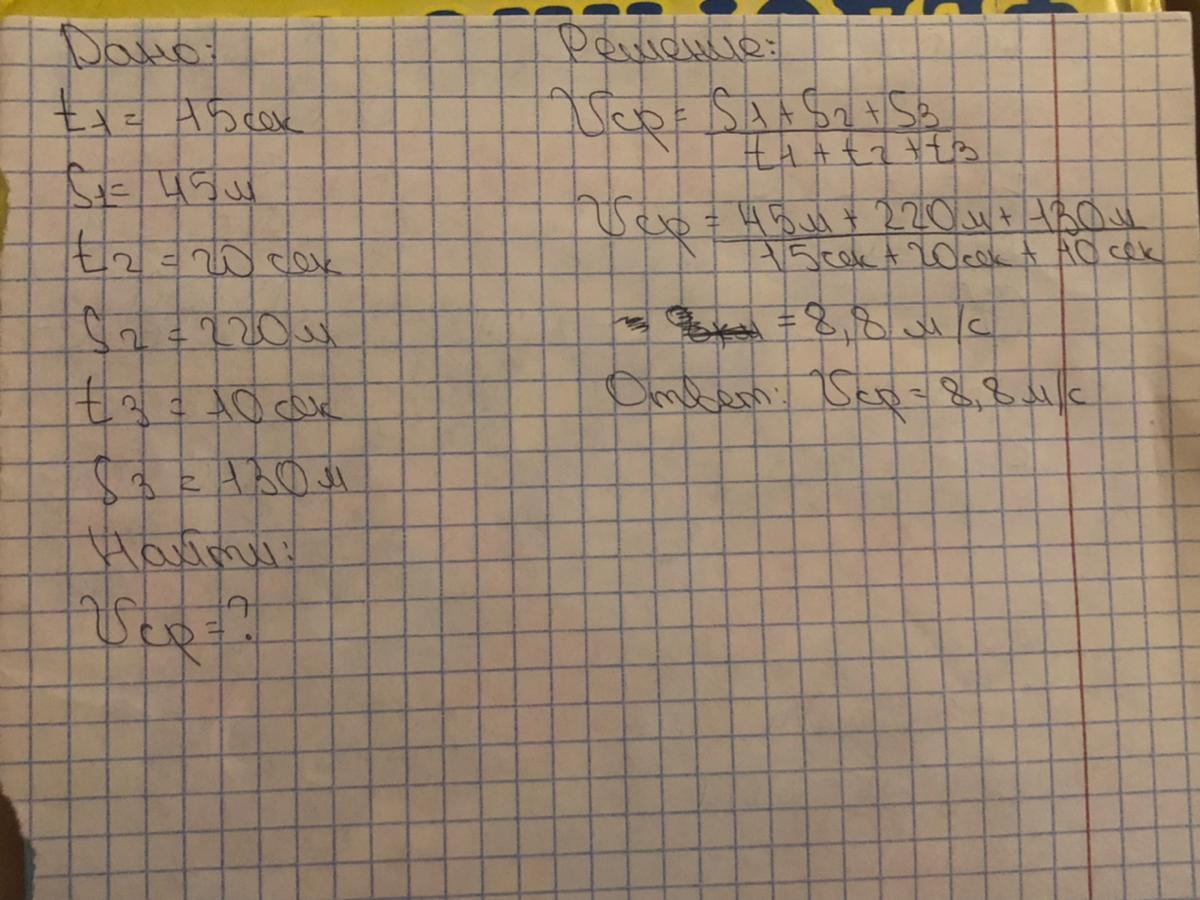 Дано:
t1 = 15 сек
S1 = 45 м
t2 = 20 сек
S2 = 220 м
t3 = 10 сек
S3 = 130 м
Найти:
Vср = ?
Решение:
Vср = S1 + S2 + S3
t1 + t2 + t3
Vср = 45 м + 220 м + 130 м
15 сек + 20 сек + 10 сек
= 8,8 м/с
Ответ: Vср = 8,8 м/с